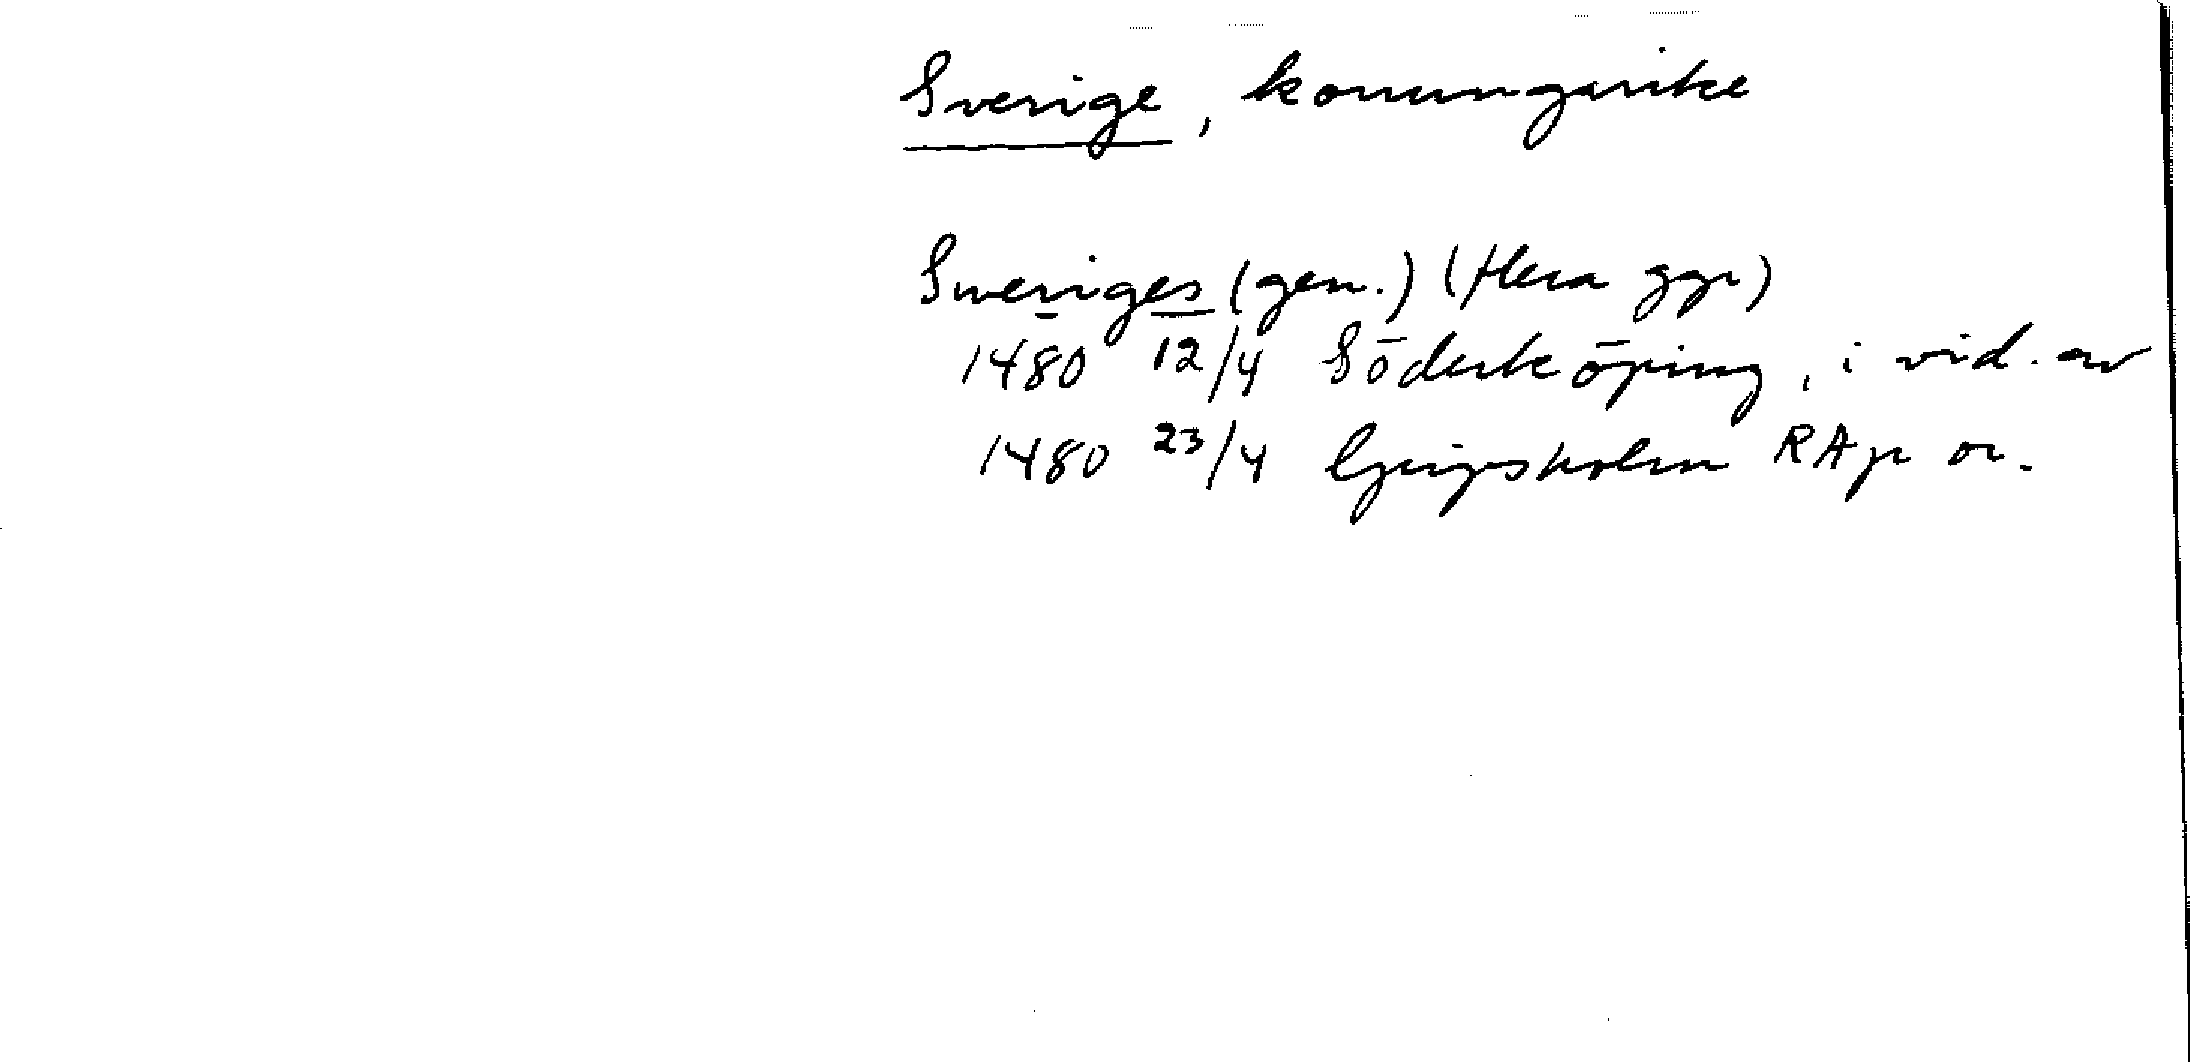 Sverige, konungarike
Sweriges (gen.) (flera ggr)
1480 12/4 Söderköping, i vid. av
1480 23/4 Ljungsholm RAp or.